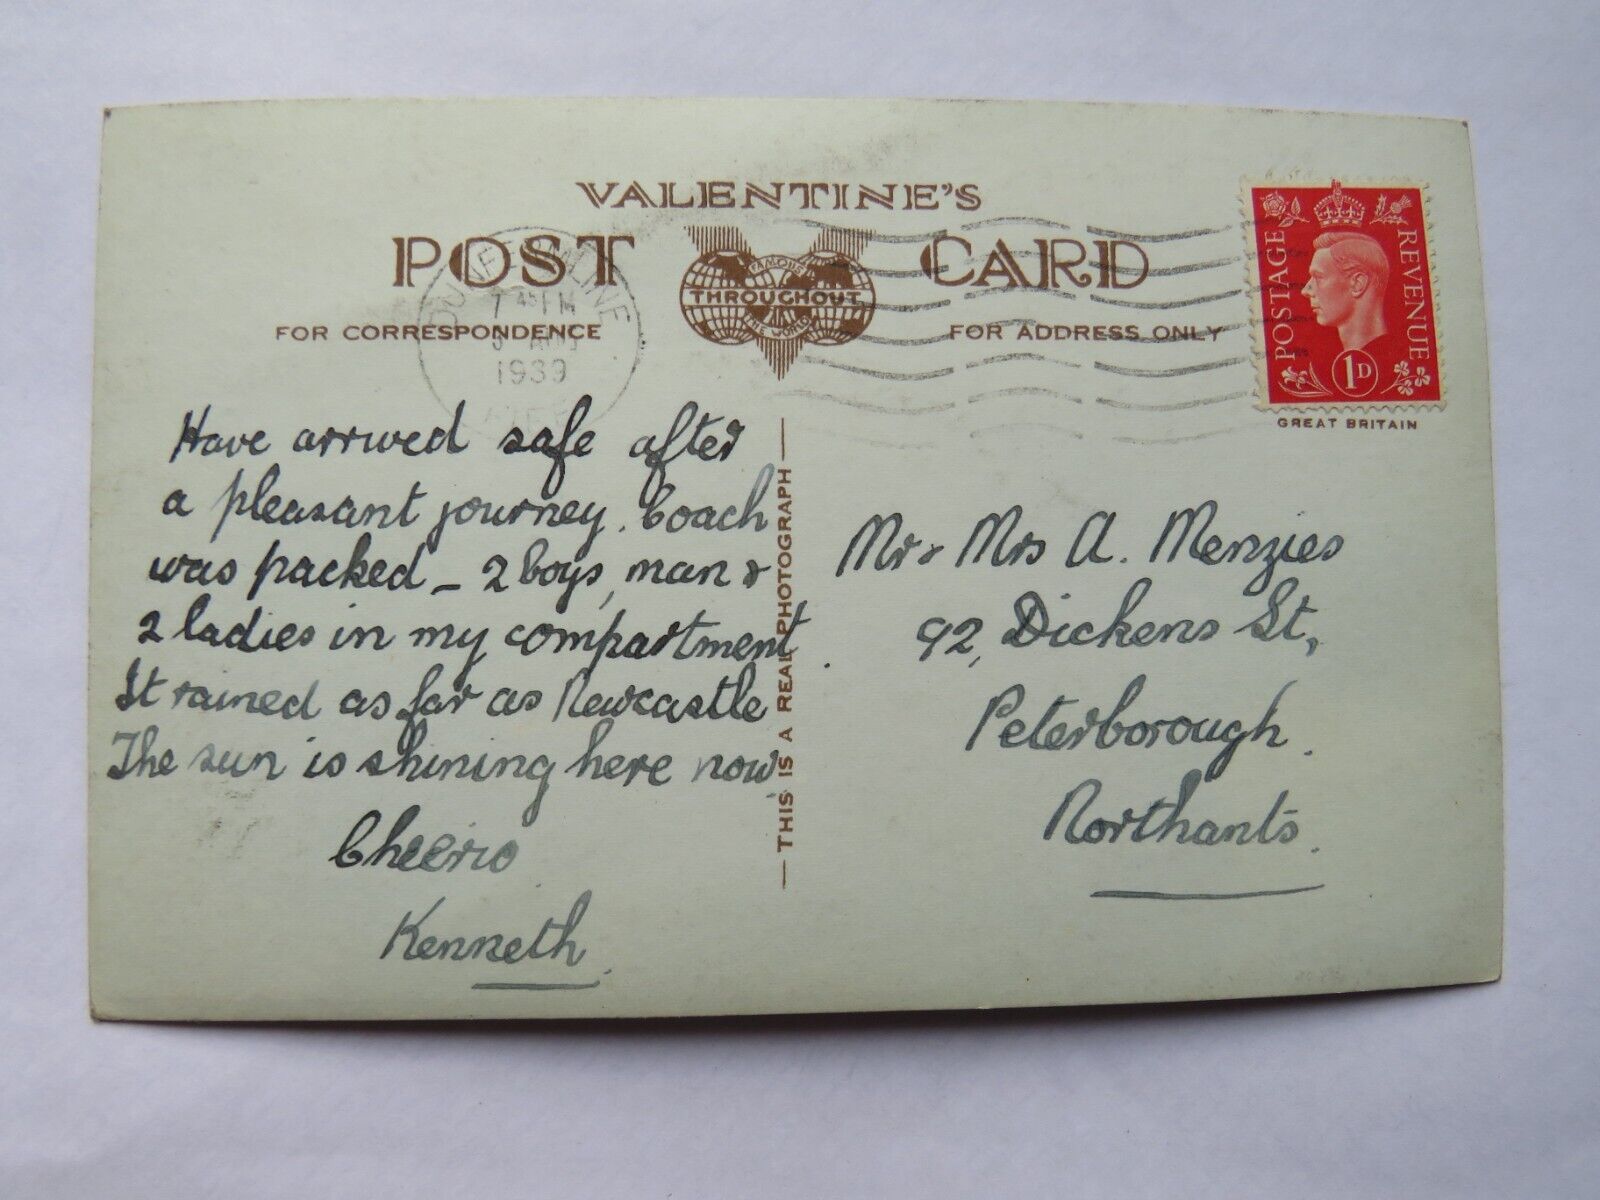 VALENTINE'S
POST CARD
FAMOUS
THROUGHOUT
THE WORLD
FOR CORRESPONDENCE
FOR ADDRESS ONLY
DUNFERMLINE
7 45 PM
1939
POSTAGE
REVENUE
1D
GREAT BRITAIN
Have arrived safe after
a pleasant journey. Coach
was packed – 2 boys, man &
2 ladies in my compartment.
It rained as far as Newcastle
The sun is shining here now
Cheerio
Kenneth.
THIS IS A REAL PHOTOGRAPH
Mr & Mrs A. Menzies
92, Dickens St,
Peterborough.
Northants.